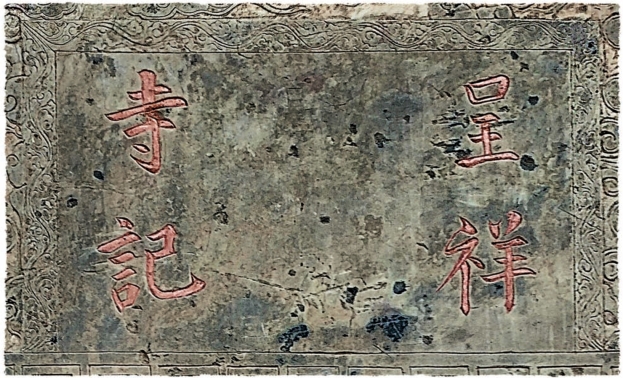 呈祥
寺記